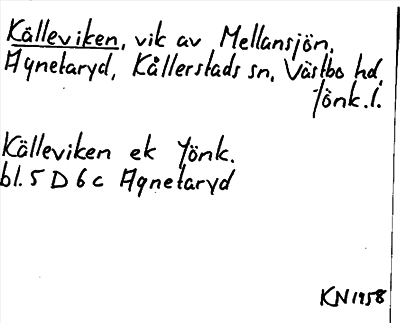 Källeviken, vik av Mellansjön,
Agnetaryd, Kållerstads sn, Västbo hd,
Jönk.l.
Källeviken ek Jönk.
bl. 5 D 6 c Agnetaryd
KN 1958